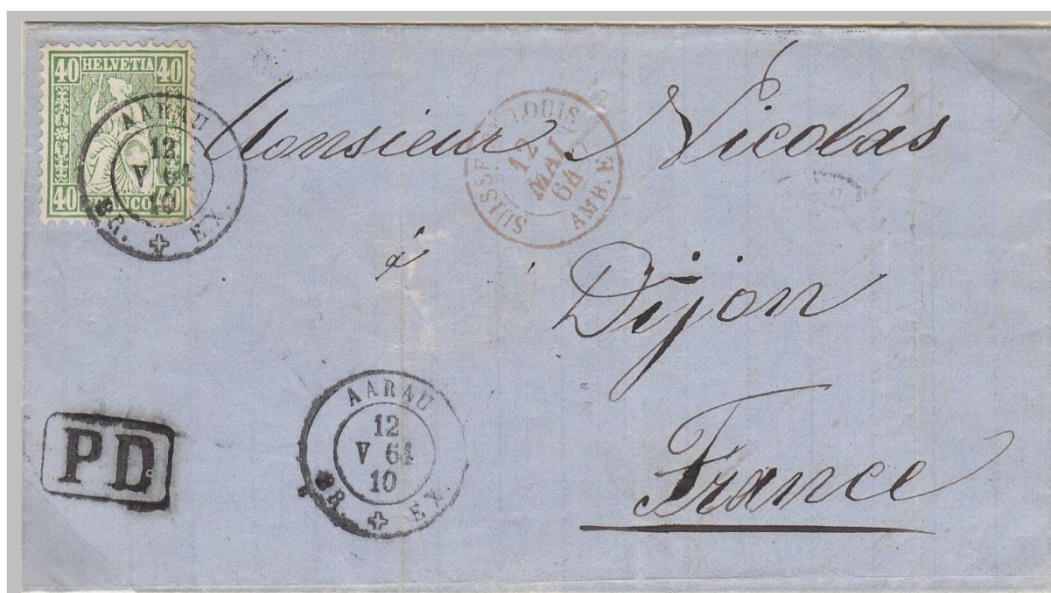 40 HELVETIA 40
40 FRANCO 40
AARAU
12
V 64
10
BR. EX.
SUISSE LOUIS
12
MAI
64
AMB.
Monsieur Nicolas
à
Dijon
France
PD
AARAU
12
V 64
10
BR. EX.